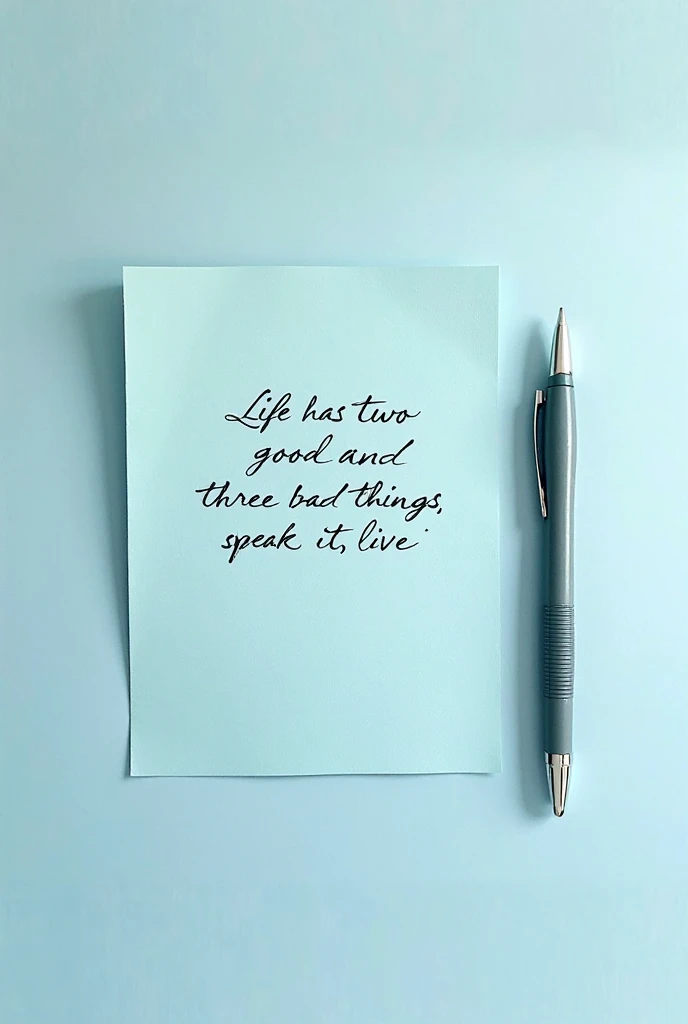 Life has two
good and
three bad things,
speak it, live